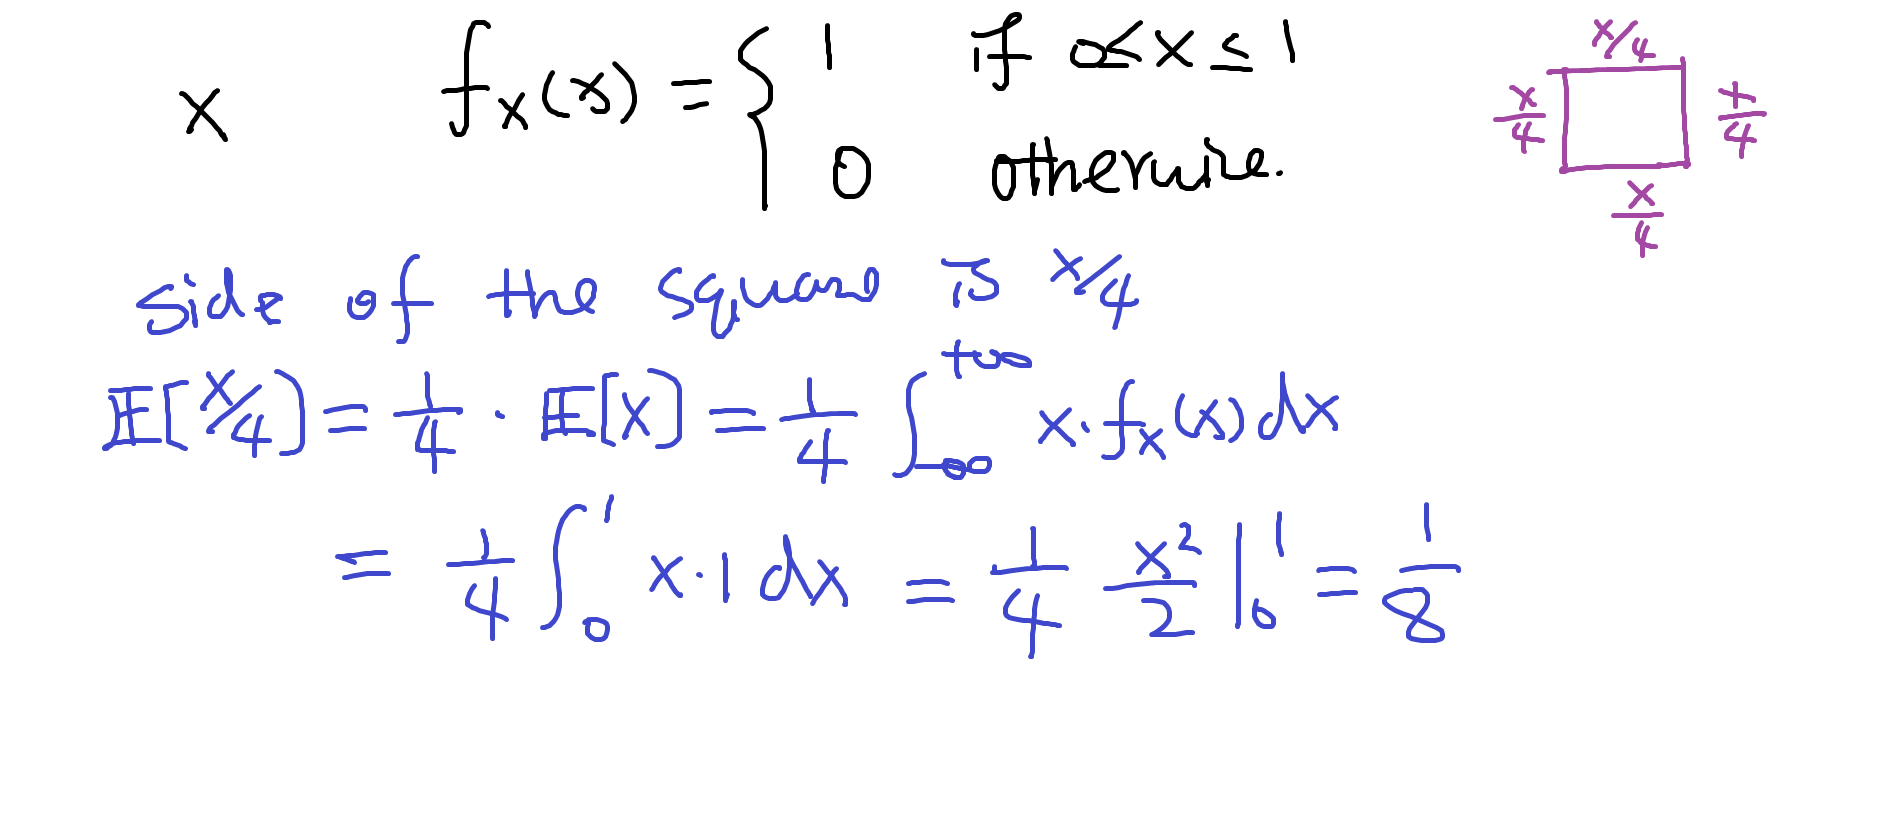 X f_X(x) = { 1 if 0 ≤ x ≤ 1
0 otherwise.
x/4
x/4
x/4
x/4
side of the square is x/4
𝔼[x/4] = 1/4 · 𝔼[X] = 1/4 ∫_{-∞}^{+∞} x · f_X(x) dx
= 1/4 ∫_0^1 x · 1 dx = 1/4 x²/2 |_0^1 = 1/8